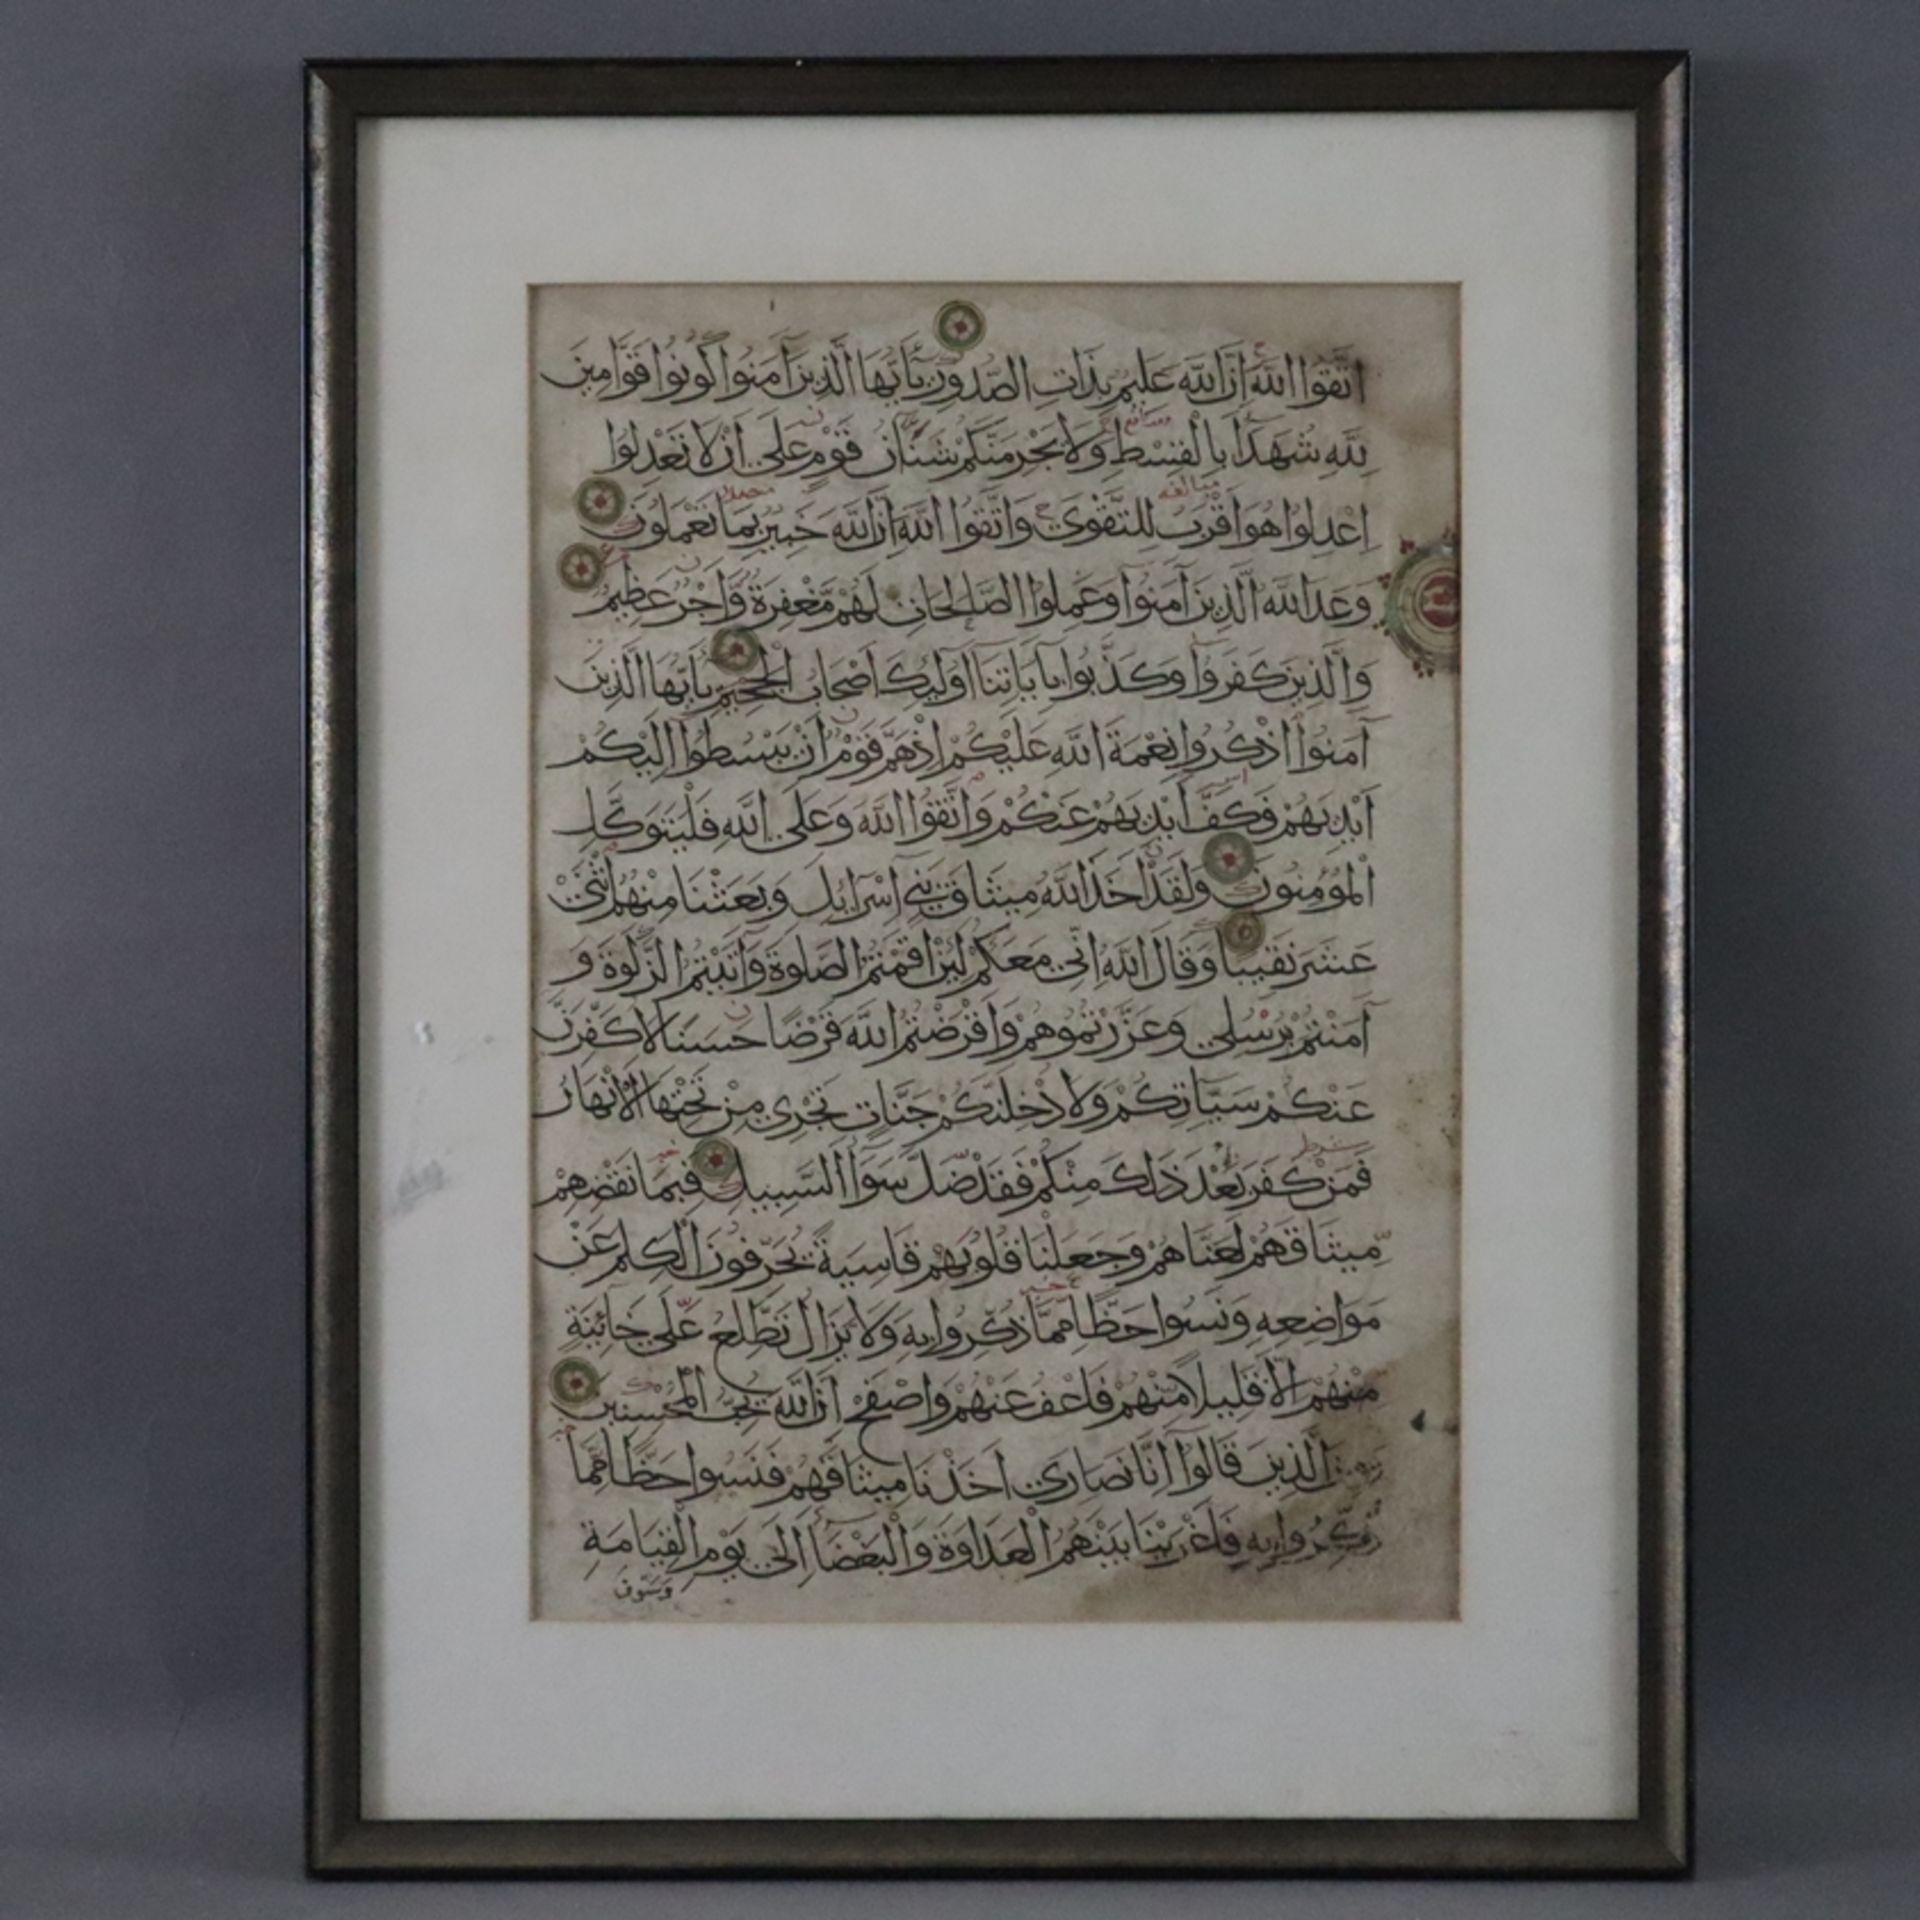 اتَّقُوا اللَّهَ إِنَّ اللَّهَ عَلِيمٌ بِذَاتِ الصُّدُورِ يَا أَيُّهَا الَّذِينَ آمَنُوا كُونُوا قَوَّامِينَ
لِلَّهِ شُهَدَاءَ بِالْقِسْطِ وَلَا يَجْرِمَنَّكُمْ شَنَآنُ قَوْمٍ عَلَى أَنْ لَا تَعْدِلُوا
اعْدِلُوا هُوَ أَقْرَبُ لِلتَّقْوَى وَاتَّقُوا اللَّهَ إِنَّ اللَّهَ خَبِيرٌ بِمَا تَعْمَلُونَ
وَعَدَ اللَّهُ الَّذِينَ آمَنُوا وَعَمِلُوا الصَّالِحَاتِ لَهُمْ مَغْفِرَةٌ وَأَجْرٌ عَظِيمٌ
وَالَّذِينَ كَفَرُوا وَكَذَّبُوا بِآيَاتِنَا أُولَئِكَ أَصْحَابُ الْجَحِيمِ يَا أَيُّهَا الَّذِينَ
آمَنُوا اذْكُرُوا نِعْمَةَ اللَّهِ عَلَيْكُمْ إِذْ هَمَّ قَوْمٌ أَنْ يَبْسُطُوا إِلَيْكُمْ
أَيْدِيَهُمْ فَكَفَّ أَيْدِيَهُمْ عَنْكُمْ وَاتَّقُوا اللَّهَ وَعَلَى اللَّهِ فَلْيَتَوَكَّلِ
الْمُؤْمِنُونَ وَلَقَدْ أَخَذَ اللَّهُ مِيثَاقَ بَنِي إِسْرَائِيلَ وَبَعَثْنَا مِنْهُمُ اثْنَيْ
عَشَرَ نَقِيبًا وَقَالَ اللَّهُ إِنِّي مَعَكُمْ لَئِنْ أَقَمْتُمُ الصَّلَوةَ وَآتَيْتُمُ الزَّكَوةَ وَ
آمَنْتُمْ بِرُسُلِي وَعَزَّرْتُمُوهُمْ وَأَقْرَضْتُمُ اللَّهَ قَرْضًا حَسَنًا لَأُكَفِّرَنَّ
عَنْكُمْ سَيِّئَاتِكُمْ وَلَأُدْخِلَنَّكُمْ جَنَّاتٍ تَجْرِي مِنْ تَحْتِهَا الْأَنْهَارُ
فَمَنْ كَفَرَ بَعْدَ ذَلِكَ مِنْكُمْ فَقَدْ ضَلَّ سَوَاءَ السَّبِيلِ فَبِمَا نَقْضِهِمْ
مِيثَاقَهُمْ لَعَنَّاهُمْ وَجَعَلْنَا قُلُوبَهُمْ قَاسِيَةً يُحَرِّفُونَ الْكَلِمَ عَنْ
مَوَاضِعِهِ وَنَسُوا حَظًّا مِمَّا ذُكِّرُوا بِهِ وَلَا يَزَالُ تَطَّلِعُ عَلَى خَائِنَةٍ
مِنْهُمْ إِلَّا قَلِيلًا مِنْهُمْ فَاعْفُ عَنْهُمْ وَاصْفَحْ إِنَّ اللَّهَ يُحِبُّ الْمُحْسِنِينَ
وَمِنَ الَّذِينَ قَالُوا إِنَّا نَصَارَى أَخَذْنَا مِيثَاقَهُمْ فَنَسُوا حَظًّا مِمَّا
ذُكِّرُوا بِهِ فَأَغْرَيْنَا بَيْنَهُمُ الْعَدَاوَةَ وَالْبَغْضَاءَ إِلَى يَوْمِ الْقِيَامَةِ
وَسَوْفَ